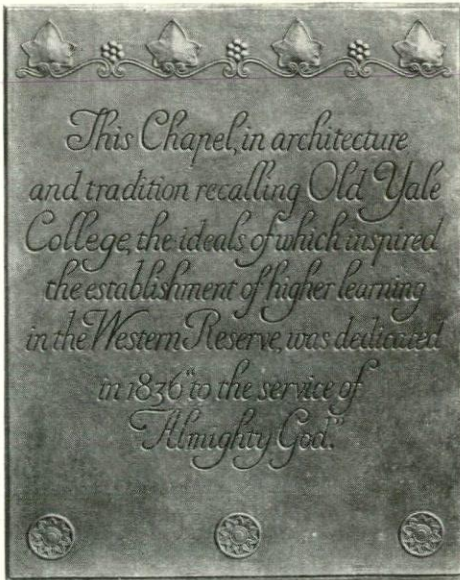 This Chapel, in architecture
and tradition recalling Old Yale
College, the ideals of which inspired
the establishment of higher learning
in the Western Reserve, was dedicated
in 1836 "to the service of
Almighty God."